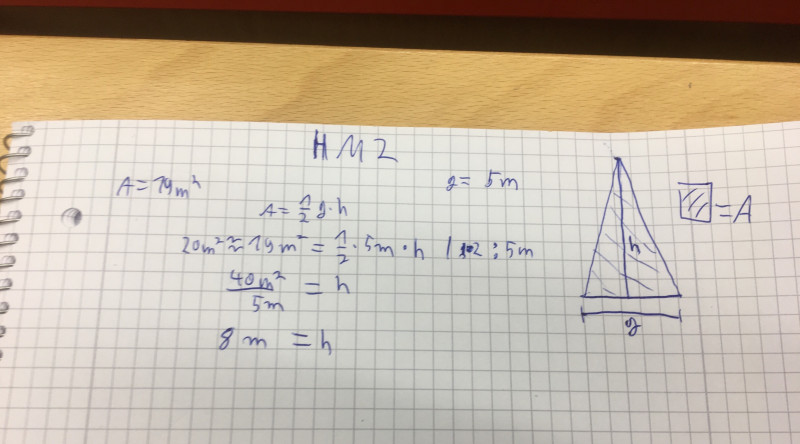 HM2
A = 19m² g = 5m
A = 1/2 g · h
20m² ≈ 19m² = 1/2 · 5m · h | · 2 : 5m
40m²/5m = h
8 m = h
h
g
= A